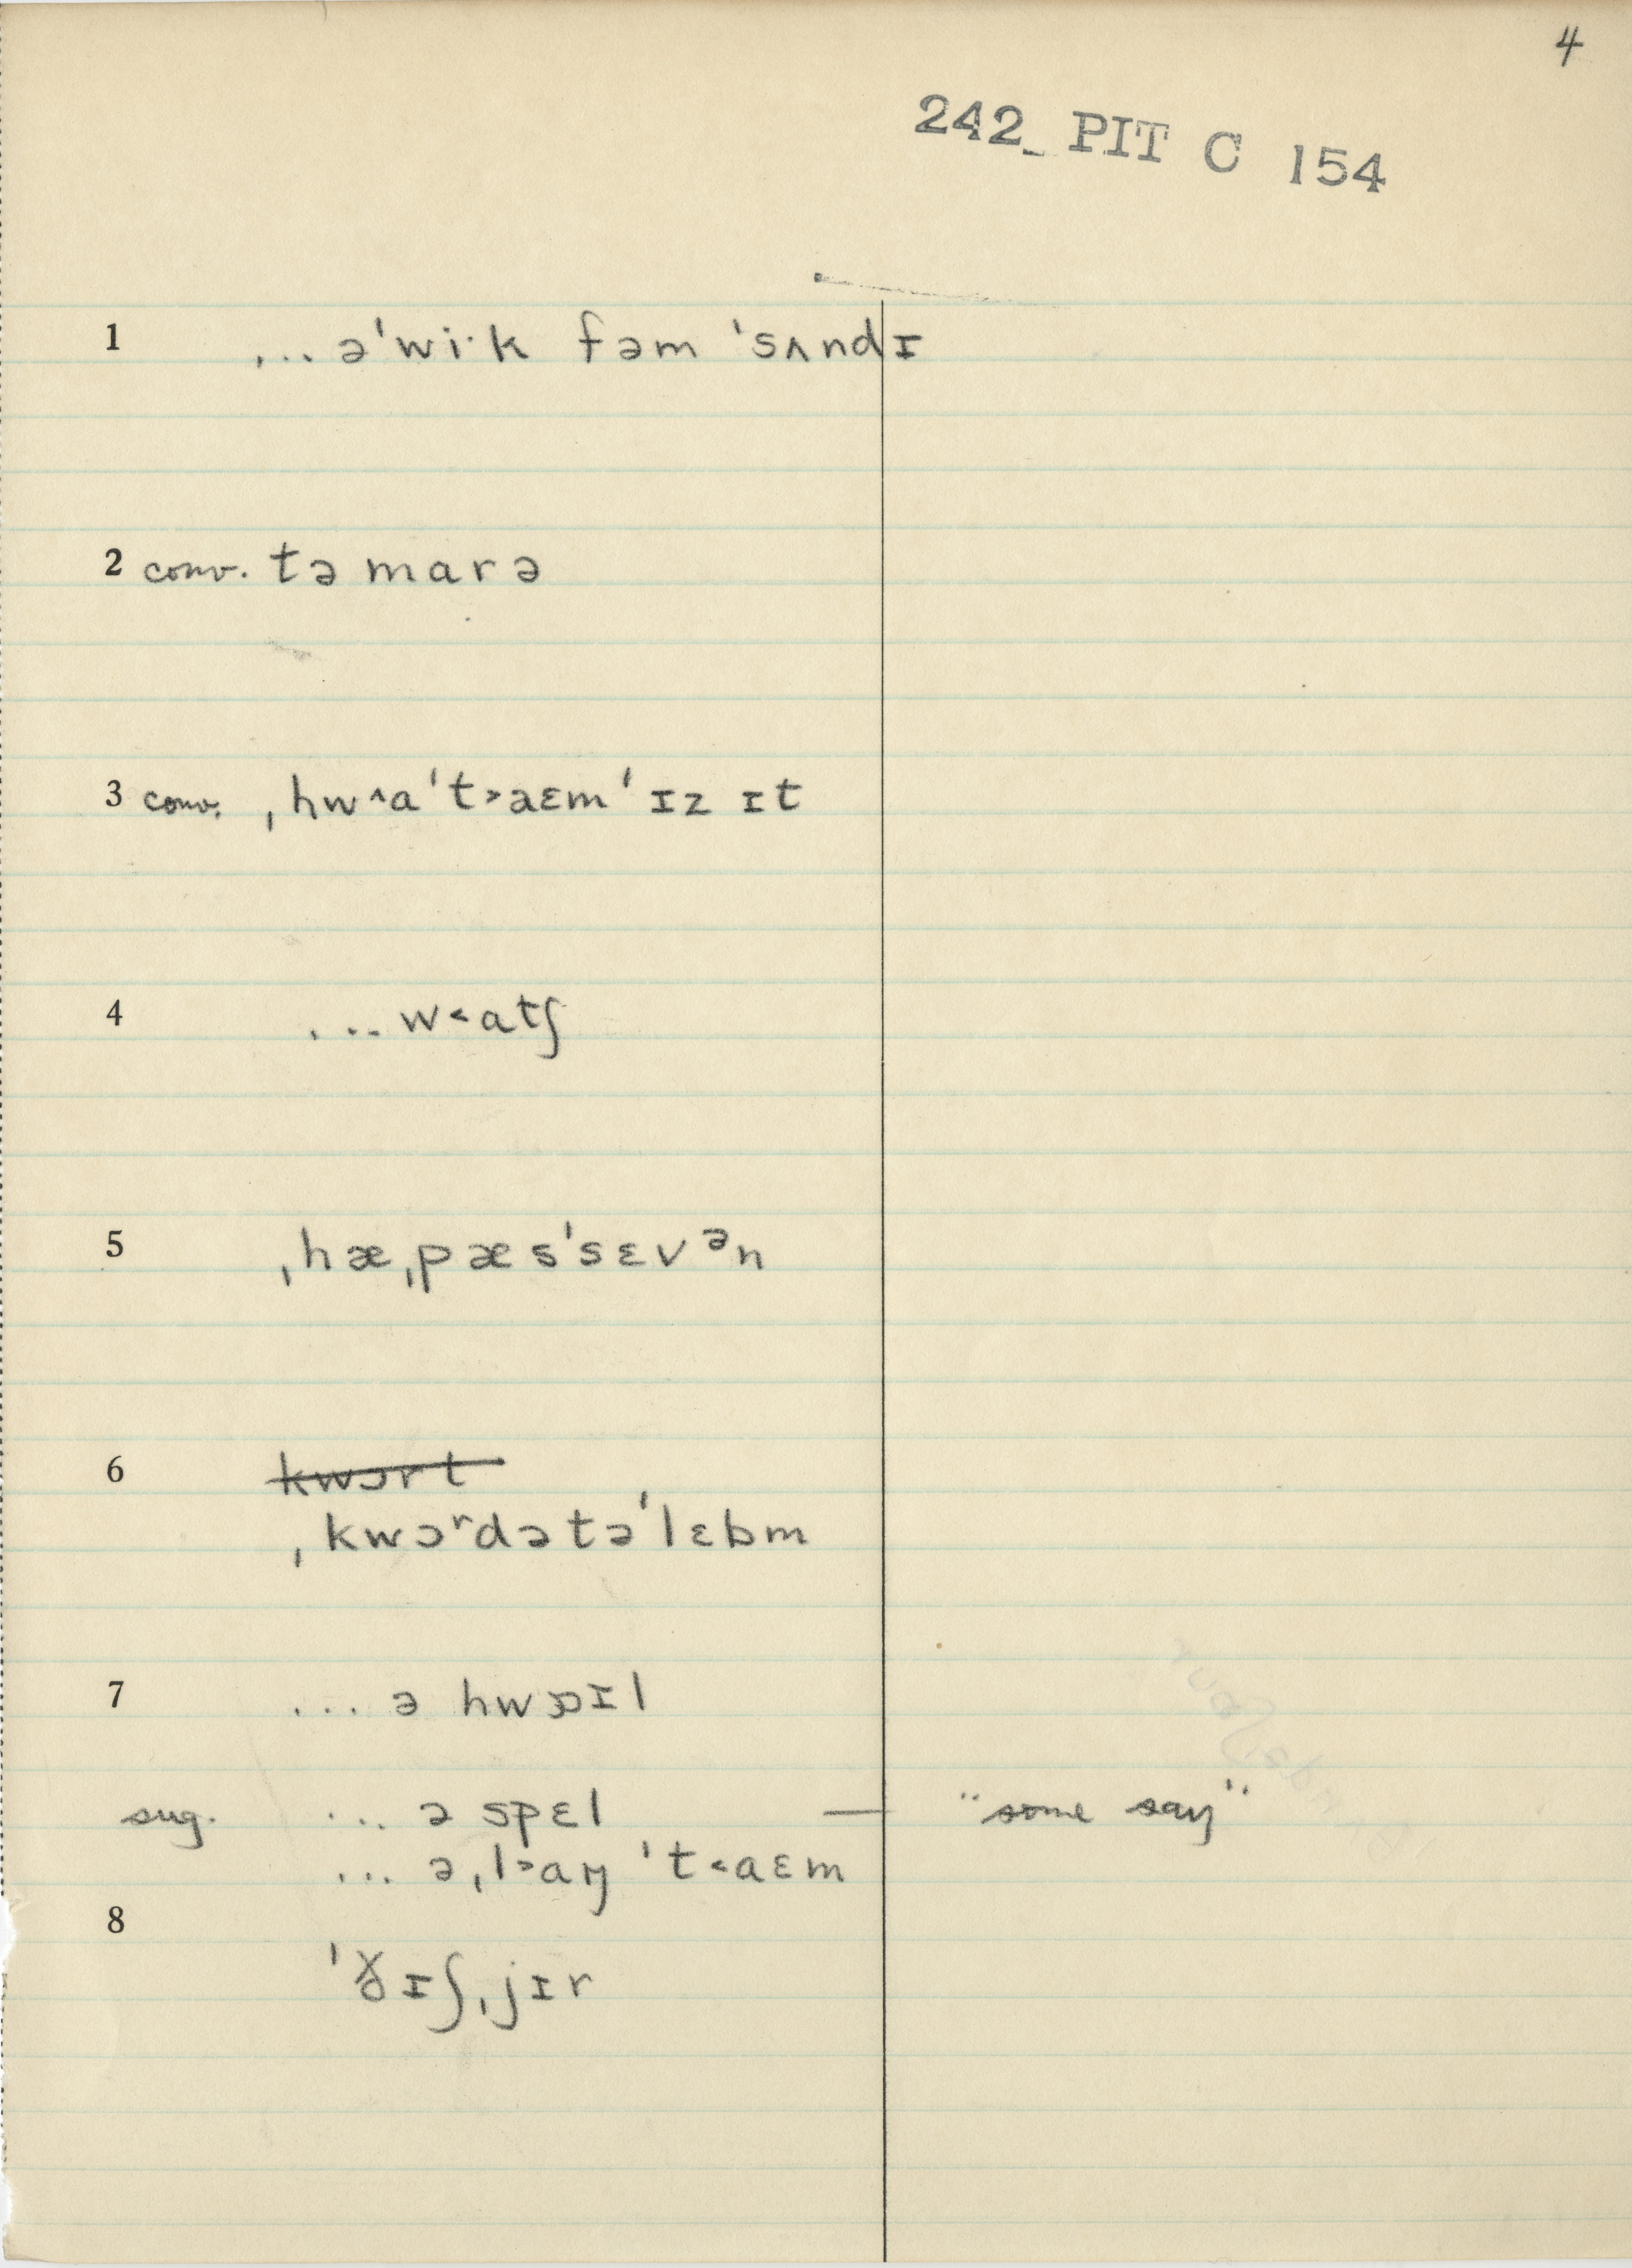 4
242 PIT C 154
1 ... ə'wi·k fəm 'sʌndɪ
2 conv. tə marə
3 conv. ˌhw˄a't˃aɛm'ɪz ɪt
4 ... w˂atʃ
5 ˌhæˌpæs'sɛvᵊn
6 kwɔrt
ˌkwɔʳdətə'lɛbm
7 ... ə hwɒɪl
sug. ... ə spɛl — "some say"
... əˌl˃aŋ 't˂aɛm
8
'ɪʃˌjɪr